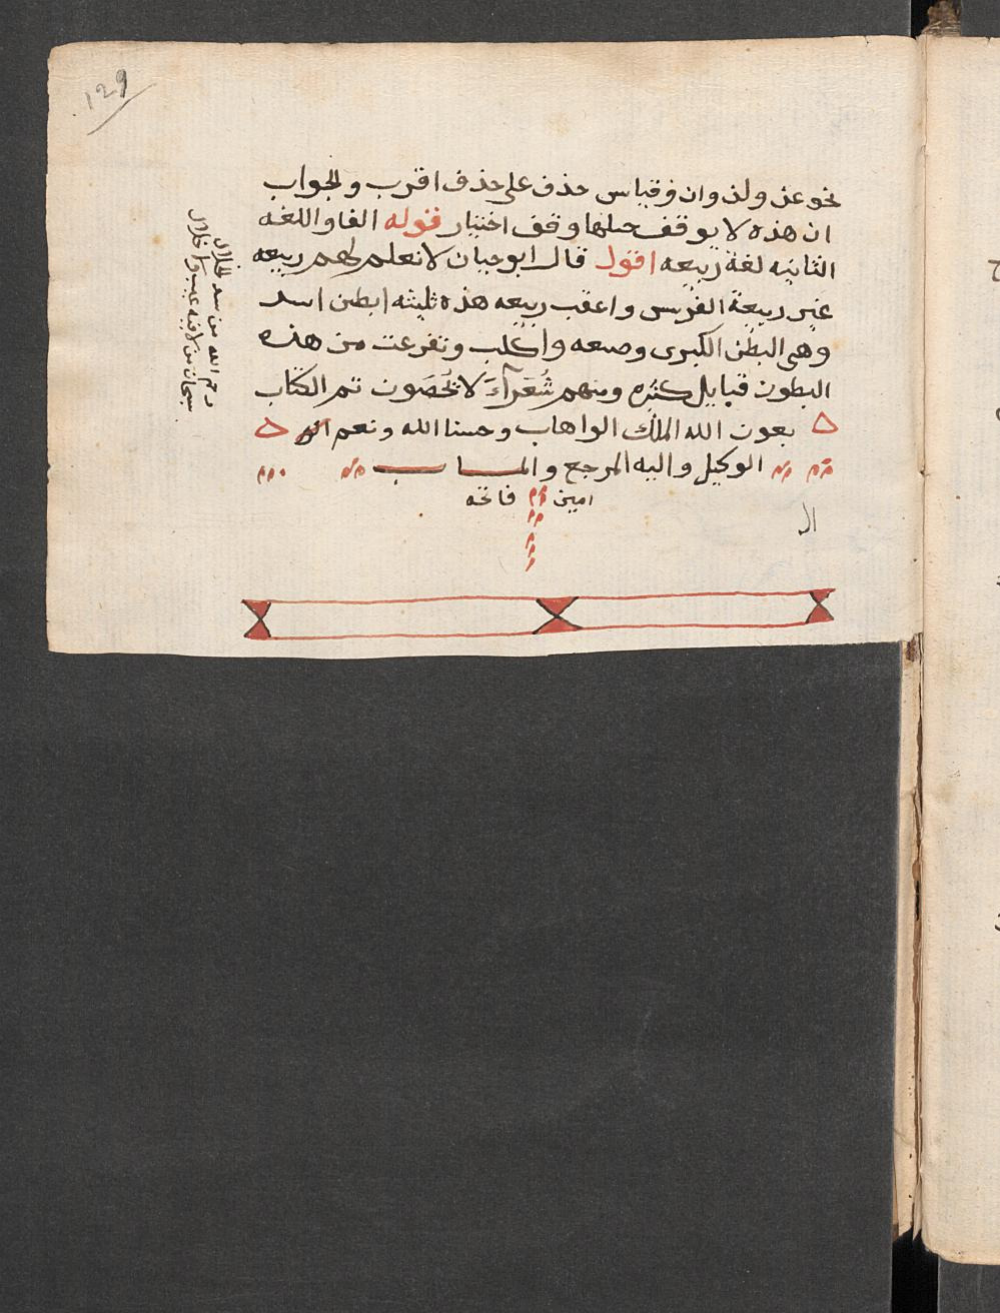 129
نحو عذ ولذ وان وقياس حذف على حذف اقرب والجواب
ان هذه لا يوقف وقف اختيار قوله الفا واللغه
الثانيه لغة ربيعه اقول قال ابو حيان لا نعلم لهم ربيعه
غير ربيعة الفرس واعقب ربيعه هذه ثلثه ابطن اسد
وهى البطن الكبرى وصعه واكلب وتفرعت من هذه
البطون قبايل كثيره ومنهم شُعَرآءَ لا تُحْصَون تم الكتاب
بعون الله الملك الواهاب وحسبنا الله ونعم
الوكيل واليه المرجع والمـــاب
امين فاتحه
رحم الله من سد الخلال
سبحان من لا فيه عيب ولا خلال